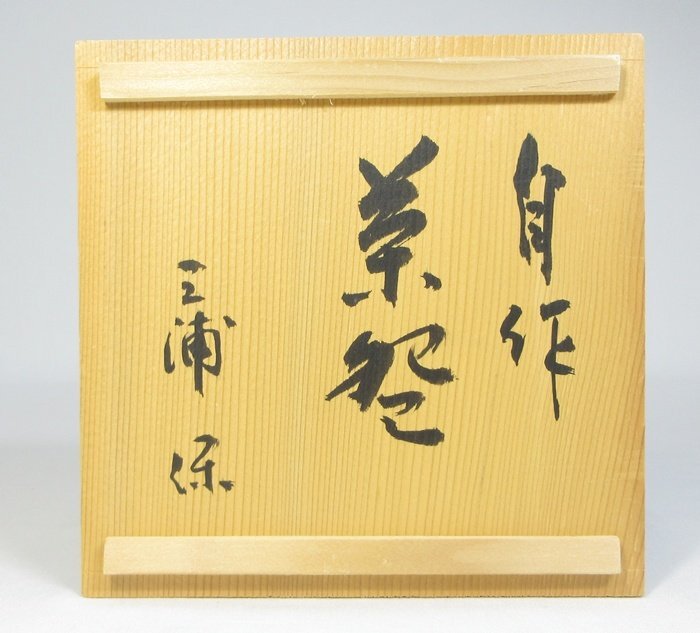 自作
茶盌
三浦 保